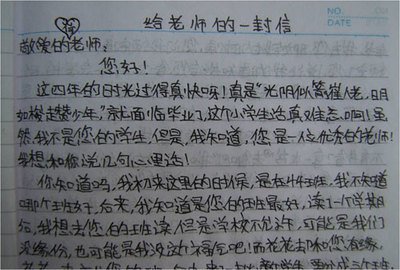 给老师的一封信
NO.
DATE
敬爱的老师:
您好!
这四年的时光过得真快呀!真是“光阴似箭催人老,日月
如梭趱少年”,就面临毕业了,这个小学生活真难忘啊!虽
然,我不是您的学生,但是,我知道,您是一位优秀的老师!
我想和你说几句心里话!
你知道吗,我初来这里的时候,是在4年班,我不知道
哪个班好,后来,我知道是您的班最好,读了一个学期
后,我想去您的班读,但是学校不允许,可能是我们
没缘份,也可能是我没这个福气吧!而花花却和您有缘,